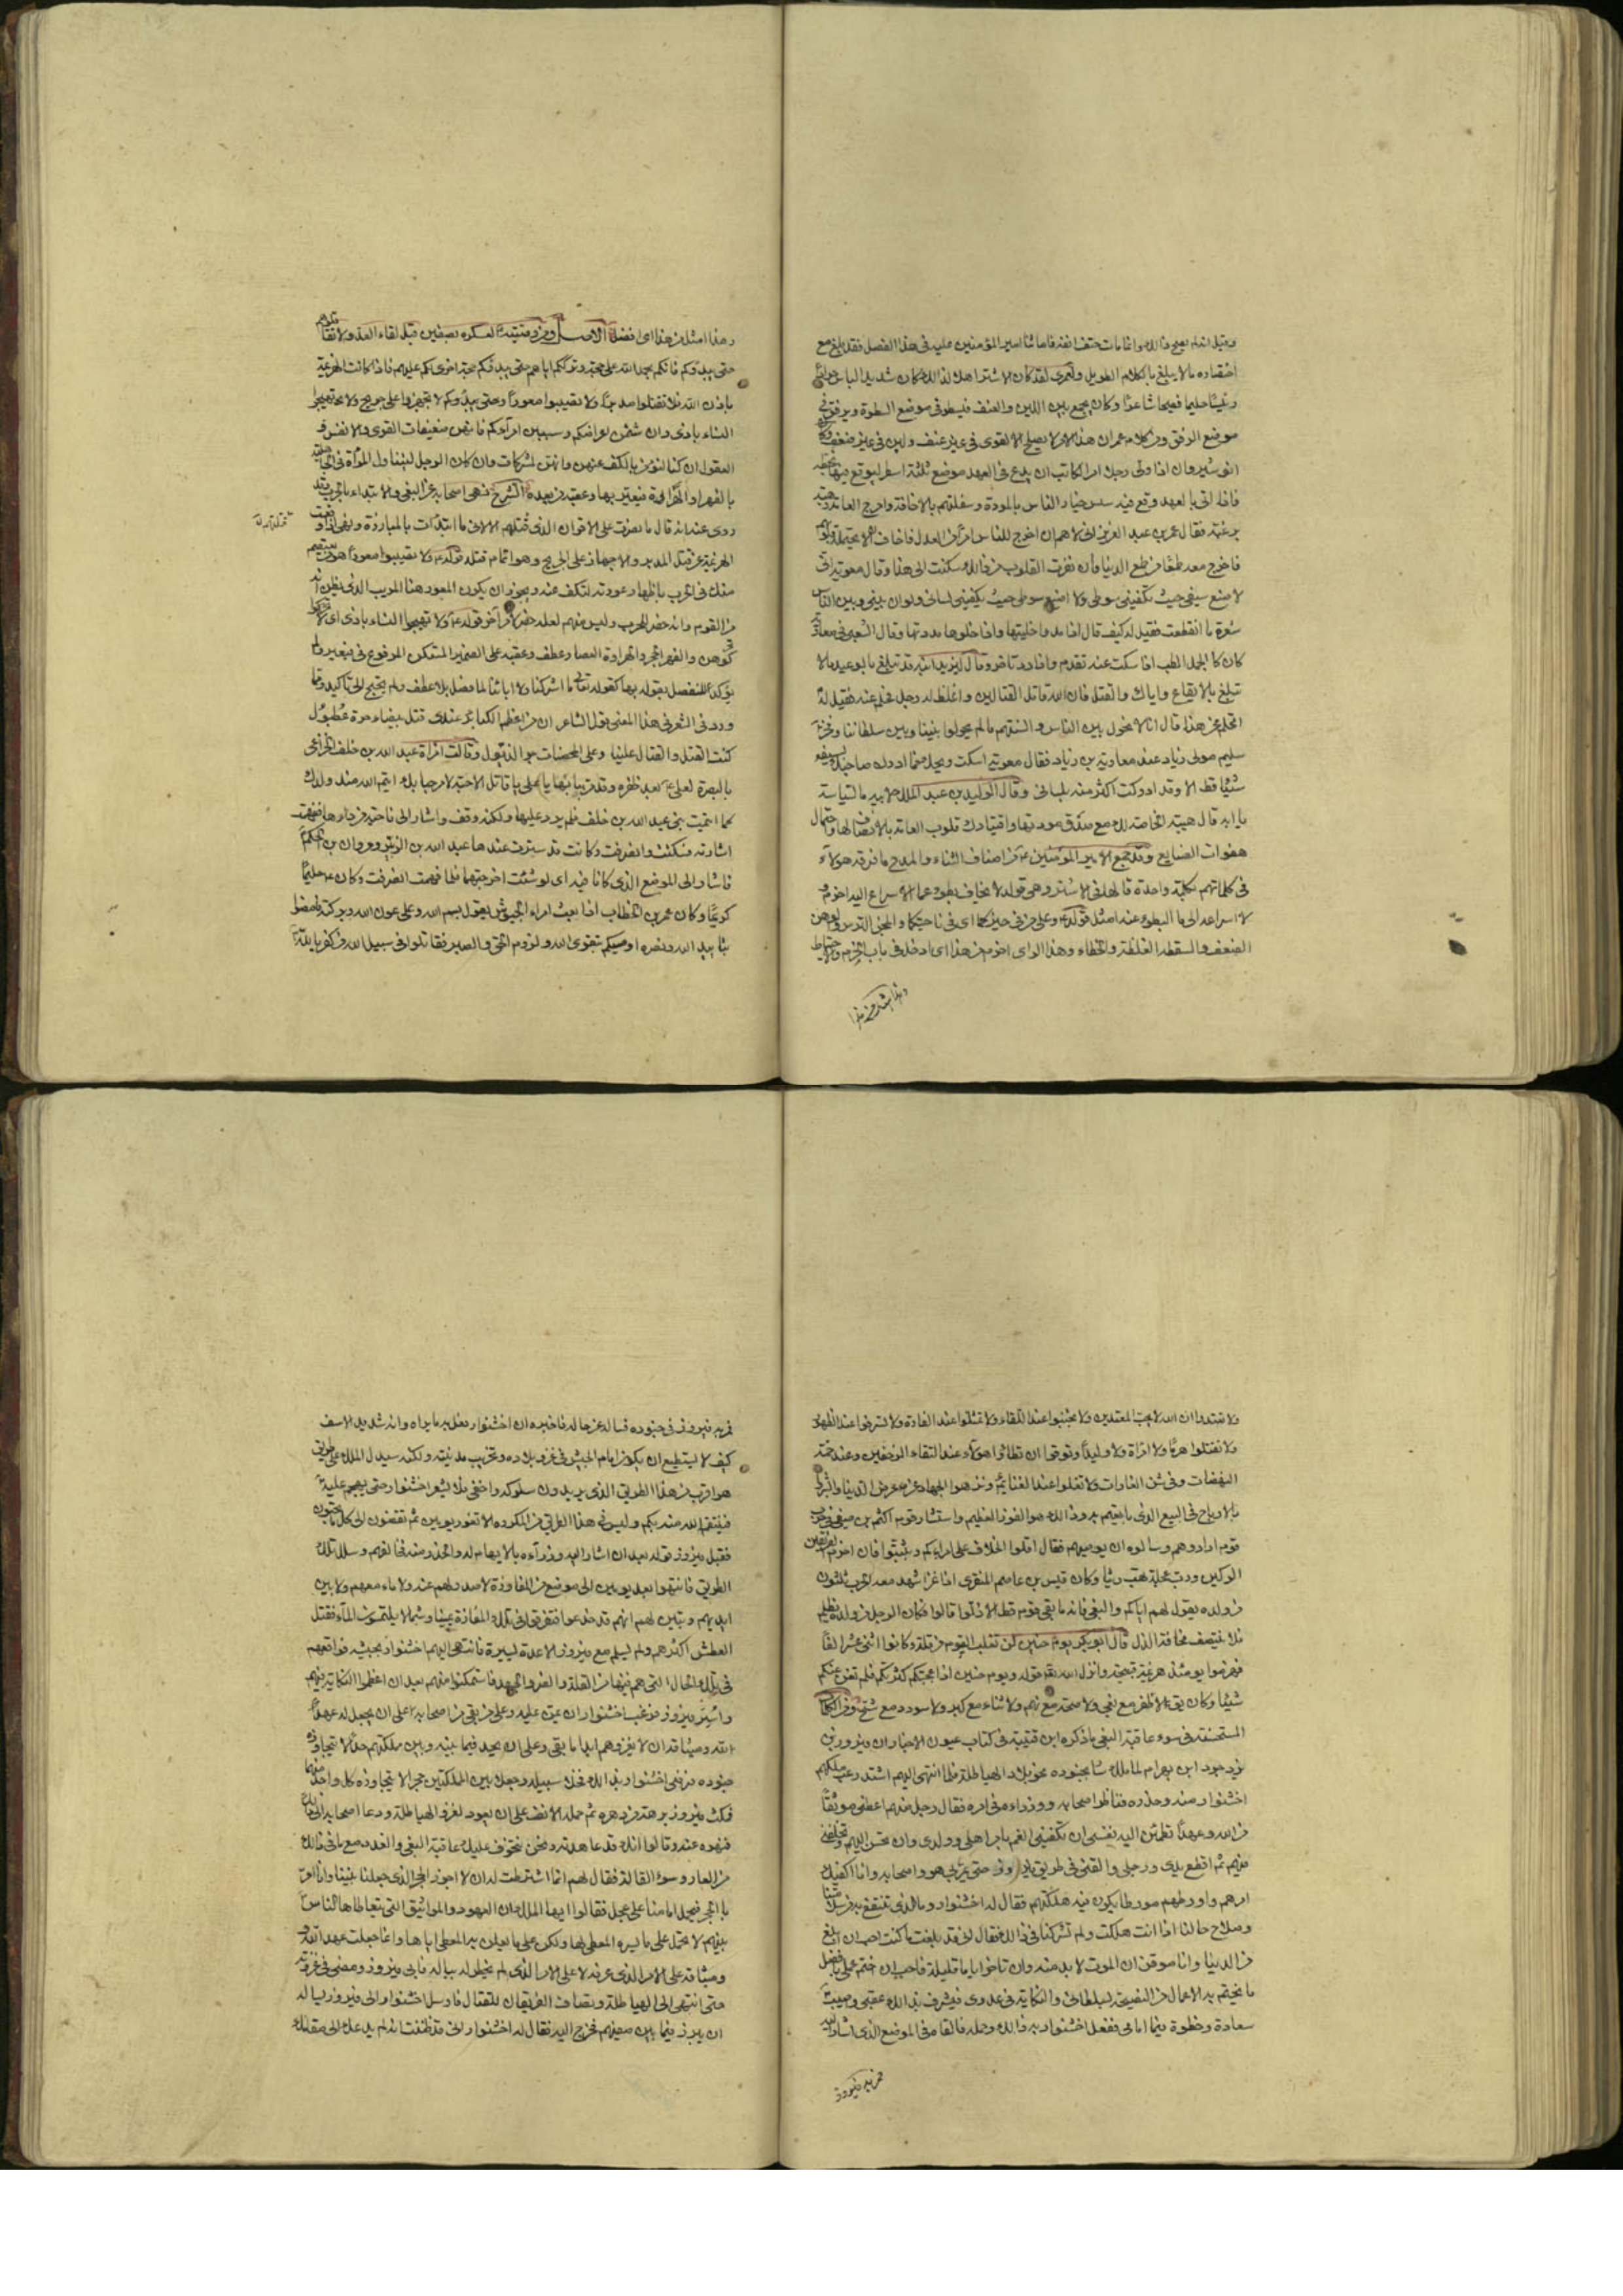 وقيل انه لم يصح ذلك وانما مات حتف انفه فاما ثنا امير المؤمنين عليه في هذا الفصل فقد بلغ مع
اختصاره ما لا يبلغ بالكلام الطويل ولعمرى لقد كان الاشتر اهلا لذلك كان شديد الباس جوادا
رئيسا حليما فصيحا شاعرا وكان يجمع بين اللين والعنف فيسطو في موضع السطوة ويرفق في
موضع الرفق ومن كلام عمر ان هذا الامر لا يصلح الا لقوى في غير عنف ولين في غير ضعف وكان
انوشيروان اذا ولى رجلا امر الكاتب ان يدع في العهد موضع ثلثة اسطر ليوقع فيها بخطه
فاذا اتى بالعهد وقع فيه سس خيار الناس بالمودة وسفلتهم بالاخافة وامزج العامة رهبة
برغبة وقال عمر بن عبد العزيز انى لاهم ان اخرج للناس امرا من العدل فاخاف ان لا يحتمله قلوبهم
فاخرج معه طمعا من طمع الدنيا فان نفرت القلوب من ذلك سكنت الى هذا وقال معوية انى
لا اضع سيفى حيث يكفينى سوطى ولا اضع سوطى حيث يكفينى لسانى ولو ان بينى وبين الناس
شعرة ما انقطعت فقيل له كيف قال اذا مدوها خليتها واذا خلوها مددتها وقال الشعبى في معاوية
كان كالجمل الطب اذا سكت عنه تقدم واذا رد تاخر وقال ليزيد ابنه قد تبلغ بالوعيد ما لا
تبلغ بالايقاع واياك والقتل فان الله قاتل القتالين واغلظ له رجل فحلم عنه فقيل له
اتحلم عن هذا قال انا لا نحول بين الناس والسنتهم ما لم يحولوا بيننا وبين سلطاننا وفخر
سليم مولى زياد عند معاوية بن زياد فقال معوية اسكت ويحك فما ادرك صاحبك بسيفه
شيئا قط الا وقد ادركت اكثر منه بلسانى وقال الوليد بن عبد الملك لابيه ما السياسة
يا ابه قال هيبة الخاصة لك مع صدق مودتها واقتيادك قلوب العامة بالانصاف لها واحتمال
هفوات الصنايع وقد جمع امير المؤمنين من اصناف الثناء والمدح ما فرقه هولاء
في كلماتهم بكلمة واحدة قالها في الاشتر وهى قوله لا يخاف بطؤه عما الاسراع اليه احزم و
لا اسراعه الى ما البطوء عنه امثل قوله وعلى من في حيزكما اى في ناحيتكما والمجن الترس والوهن
الضعف والسقطة الغلطة والخطاء وهذا الراى احزم من هذا اى ادخل في باب الحزم والاحتياط
وهذا امثل من هذا
وهذا امثل من هذا اى افضل الاصل ومن وصيته لعسكره بصفين قبل لقاء العدو لا تقاتلوهم
حتى يبدؤكم فانكم بحمد الله على حجة وترككم اياهم حتى يبدؤكم حجة اخرى لكم عليهم فاذا كانت الهزيمة
باذن الله فلا تقتلوا مدبرا ولا تصيبوا معورا ولا تجهزوا على جريح ولا تهيجوا
النساء باذى وان شتمن اعراضكم وسببن امراءكم فانهن ضعيفات القوى والانفس و
العقول ان كنا لنؤمر بالكف عنهن وانهن لمشركات وان كان الرجل ليتناول المراة في الجاهلية
بالفهر او الهراوة فيعير بها وعقبه من بعده الشرح نهى اصحابه عن البغى والابتداء بالحرب وقد
روى عنه انه قال ما نصرت على الاقران الذى قتلتهم الا لانى ما ابتدات بالمبارزة ونهى اذا وقعت
الهزيمة عن قتل المدبر والاجهاز على الجريح وهو اتمام قتله قوله ولا تصيبوا معورا هو من يعتصم
منك في الحرب باظهار عورته لتكف عنه ويجوز ان يكون المعور هنا المريب الذى يظن انه
من القوم وانه حضر الحرب وليس منهم لعله حضر لامر آخر قوله ولا تهيجوا النساء باذى اى لا تحركو
كوهن والفهر الحجر والهراوة العصا وعطف وعقبه على الضمير المستكن المرفوع في فيعير ولم
يؤكد للفصل بقوله بها كقوله تعالى ما اشركنا ولا اباؤنا لما فصل بلا عطف ولم يحتج الى تاكيد ومما
ورد في الشعر في هذا المعنى قول الشاعر ان من اعظم الكبائر عندى قتل بيضاء حرة عطبول
كتب القتل والقتال علينا وعلى المحصنات جر الذيول وقالت امراة عبد الله بن خلف الخزاعى
بالبصرة لعلى بعد ظفره وقد مر ببابها يا على يا قاتل الاحبة لا مرحبا بك ايتم الله منك ولدك
كما ايتمت بنى عبد الله بن خلف فلم يرد عليها ولكنه وقف واشار الى ناحية من دارها ففهمت
اشارته فسكتت وانصرفت وكانت قد سترت عندها عبد الله بن الزبير ومروان بن الحكم
فاشار الى الموضع الذى كانا فيه اى لو شئت اخرجتهما فلما فهمت انصرفت وكان حليما
كريما وكان عمر بن الخطاب اذا بعث امراء الجيوش يقول بسم الله وعلى عون الله وبركته فامضوا
بتاييد الله ونصره اوصيكم بتقوى الله ولزوم الحق والصبر فقاتلوا في سبيل الله من كفر بالله
ولا تعتدوا ان الله لا يحب المعتدين ولا تجبنوا عند اللقاء ولا تمثلوا عند الغارة ولا تسرفوا عند الظهور
ولا تقتلوا هرما ولا امراة ولا وليدا وتوقوا ان تطاؤا هولاء عند التقاء الزحفين وعند حمة
النهضات وفي شن الغارات ولا تغلوا عند الغنائم ونزهوا الجهاد عن عرض الدنيا وابشروا
بالارباح في البيع الذى بايعتم به وذلك هو الفوز العظيم واستشار قوم اكثم بن صيفى في حرب
قوم ارادوهم وسالوه ان يوصيهم فقال اقلوا الخلاف على امرائكم وتثبتوا فان احزم الفريقين
الركين ورب عجلة تهب ريثا وكان قيس بن عاصم المنقرى اذا غزا شهد معه الحرب ثلثون
من ولده يقول لهم اياكم والبغى فانه ما بغى قوم قط الا ذلوا قالوا فكان الرجل من ولده يظلم
فلا ينتصف مخافة الذل قال ابو بكر يوم حنين لن نغلب اليوم من قلة وكانوا اثنى عشر الفا
فهزموا يومئذ هزيمة قبيحة وانزل الله تعالى قوله ويوم حنين اذ اعجبتكم كثرتكم فلم تغن عنكم
شيئا وكان يق لا ظفر مع بغى ولا صحة مع نهم ولا ثناء مع كبر ولا سودد مع شح ومن الحكايات
المستحسنة في سوء عاقبة البغى ما ذكره ابن قتيبة في كتاب عيون الاخبار ان فيروز بن
يزدجرد ابن بهرام لما ملك سار بجنوده نحو بلاد الهياطلة فلما انتهى اليهم اشتد رعب ملكهم
اخشنوار منه وحذره فناظر اصحابه ووزراءه في امره فقال رجل منهم اعطنى موثقا
من الله وعهدا تطمئن اليه نفسى ان تكفينى الغم بامر اهلى وولدى وان تحسن اليهم وتخلفنى
فيهم ثم اقطع يدى ورجلى والقنى في طريق فيروز حتى يمر بى هو واصحابه وانا اكفيك
امرهم واورطهم مورطا يكون فيه هلكتهم فقال له اخشنوار وما الذى تنتفع به من سلامتنا
وصلاح حالنا اذا انت هلكت ولم تشركنا في ذلك فقال انى قد بلغت ما كنت احب ان ابلغ
من الدنيا وانا موقن ان الموت لا بد منه وان تاخر اياما قليلة فاحب ان اختم عملى بافضل
ما يختم به الاعمال من النصيحة لسلطانى والنكاية في عدوى فيشرف بذلك عقبى واصيب
سعادة وحظوة فيما امامى ففعل اخشنوار به ذلك وحمله فالقاه في الموضع الذى اشار اليه
فمر به فيروز
فمر به فيروز في جنوده فساله عن حاله فاخبره ان اخشنوار فعل به ما يراه وانه شديد الاسف
كيف لا يستطيع ان يكون امام الجيش في غزو بلاده وتخريب مدينته ولكنه سيدل الملك على طريق
هو اقرب من هذا الطريق الذى يريدون سلوكه واخفى فلا يشعر اخشنوار حتى يهجم عليه
فينتقم الله منه بكم وليس في هذا الطريق من المكروه الا تغور يومين ثم تفضون الى كل ما تحبون
فقبل فيروز قوله بعد ان اشار اليه وزراءه بالاتهام له والحذر منه فخالفهم وسلك تلك
الطريق فانتهوا بعد يومين الى موضع من المفازة لا صدر لهم عنه ولا ماء معهم ولا بين
ايديهم وتبين لهم انهم قد خدعوا فتفرقوا في تلك المفازة يمينا وشمالا يلتمسون الماء فقتل
العطش اكثرهم ولم يسلم مع فيروز الا عدة يسيرة فانتهى اليهم اخشنوار بجيشه فواقعهم
في تلك الحال التى هم فيها من القلة والضر والجهد فاستمكنوا منهم بعد ان اعظموا النكاية فيهم
واسر فيروز فرغب اخشنوار ان يمن عليه وعلى من بقى من اصحابه على ان يجعل له عهد
الله وميثاقه ان لا يغزوهم ابدا ما بقى وعلى ان يحد فيما بينه وبين مملكتهم حدا لا يتجاوزه
جنوده فرضى اخشنوار بذلك فخلى سبيله وجعلا بين المملكتين حجرا لا يتجاوزه كل واحد منهما
فمكث فيروز برهة من دهره ثم حمله الانف على ان يعود لغزو الهياطلة ودعا اصحابه الى ذلك
فنهوه عنه وقالوا انك قد عاهدته ونحن نتخوف عليك عاقبة البغى والغدر مع ما في ذلك
من العار وسوء القالة فقال لهم انما اشترطت له ان لا اجوز الحجر الذى جعلنا بيننا وانا آمر
بالحجر فيحمل امامنا على عجل فقالوا ايها الملك ان العهود والمواثيق التى يتعاطاها الناس
بينهم لا تحمل على ما يسره المعطى لها ولكن على ما يعلن به المعطى اياها وانما جعلت عهد الله
وميثاقه على الامر الذى عرفه لا على الامر الذى لم يخطر له بباله فابى فيروز ومضى في غزوته
حتى انتهى الى الهياطلة وتصاف الفريقان للقتال فارسل اخشنوار الى فيروز يساله
ان يبرز فيما بين صفيهم فخرج اليه فقال له اخشنوار انى قد ظننت انه لم يدعك الى مقامك